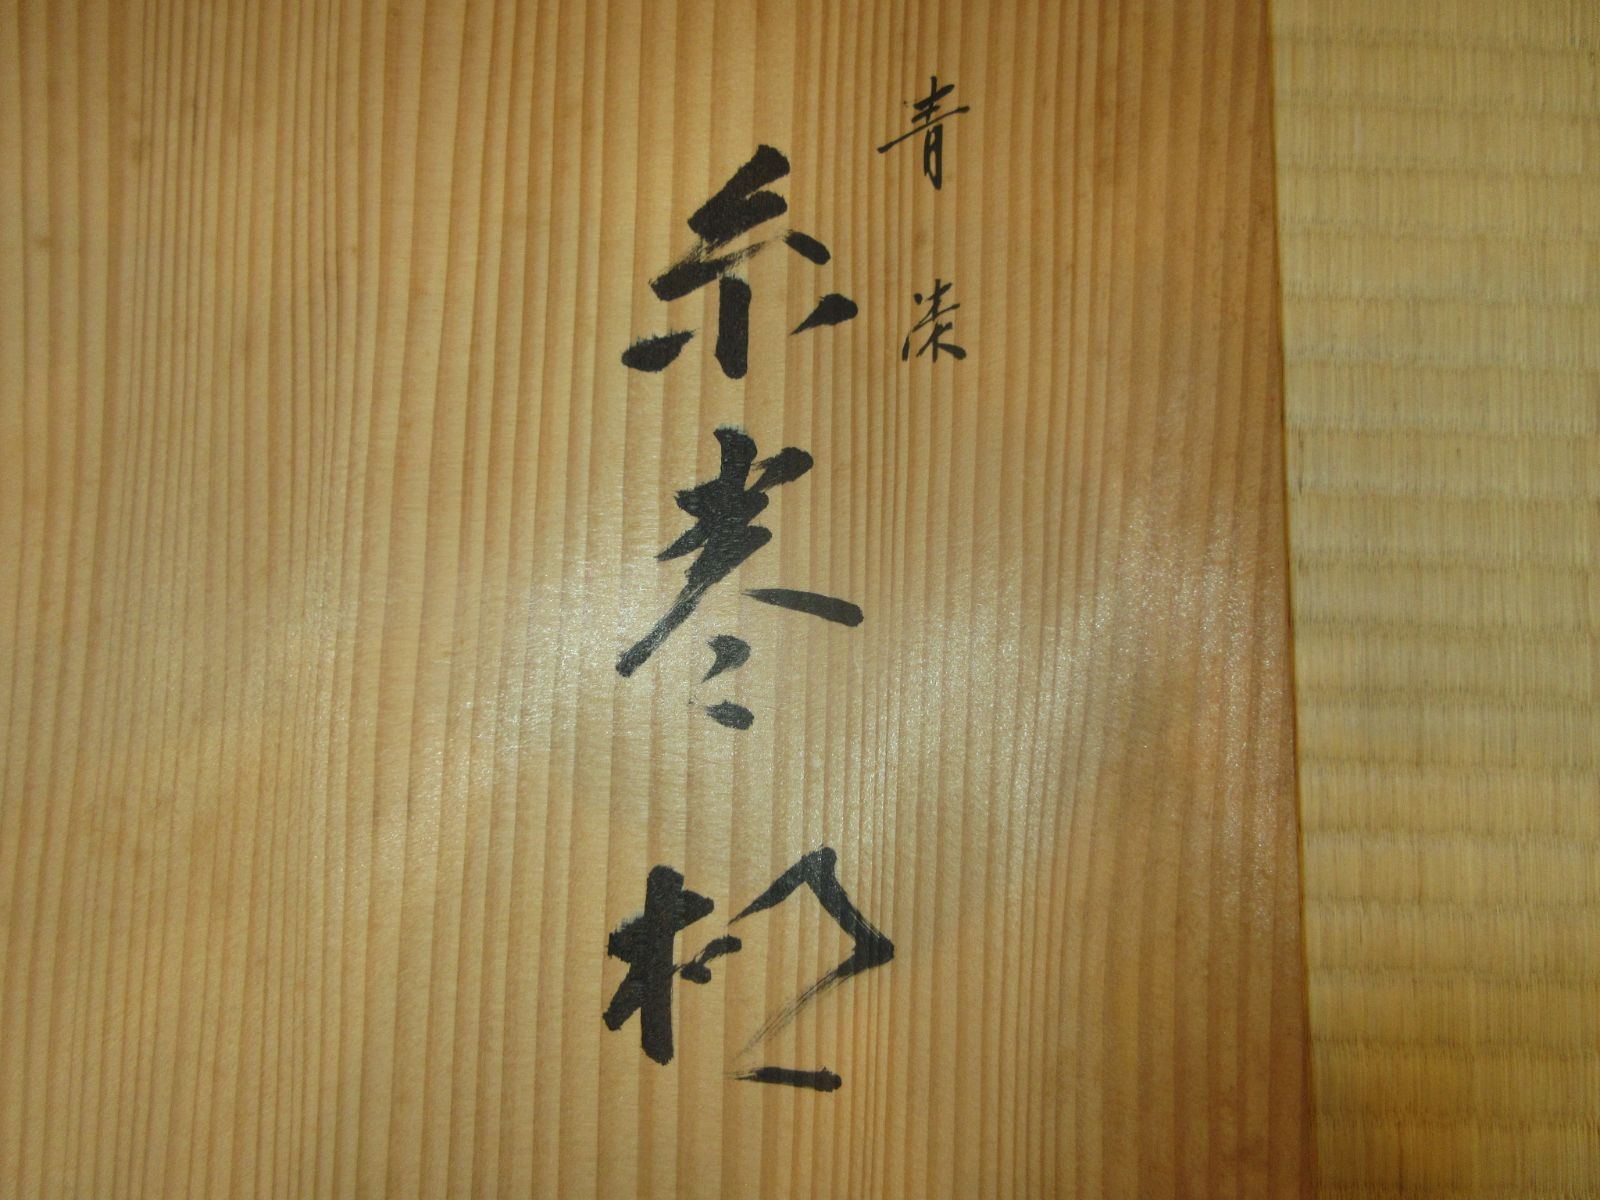 青漆
糸巻棚